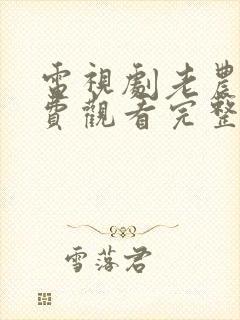 電視劇老農
費觀看完整
雪落君